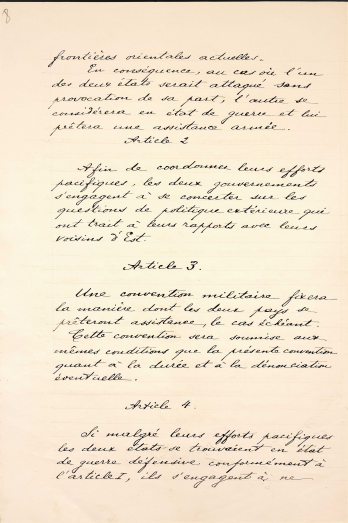 8
frontières orientales actuelles.
En conséquence, au cas où l'un
des deux états serait attaqué sans
provocation de sa part, l'autre se
considérera en état de guerre et lui
prêtera une assistance armée.
Article 2
Afin de coordonner leurs efforts
pacifiques, les deux gouvernements
s'engagent à se concerter sur les
questions de politique extérieure qui
ont trait à leurs rapports avec leurs
voisins d'Est.
Article 3.
Une convention militaire fixera
la manière dont les deux pays se
prêteront assistance, le cas échéant.
Cette convention sera soumise aux
mêmes conditions que la présente convention
quant à la durée et à la dénonciation
éventuelle.
Article 4.
Si malgré leurs efforts pacifiques
les deux états se trouvaient en état
de guerre défensive conformément à
l'article I, ils s'engagent à ne